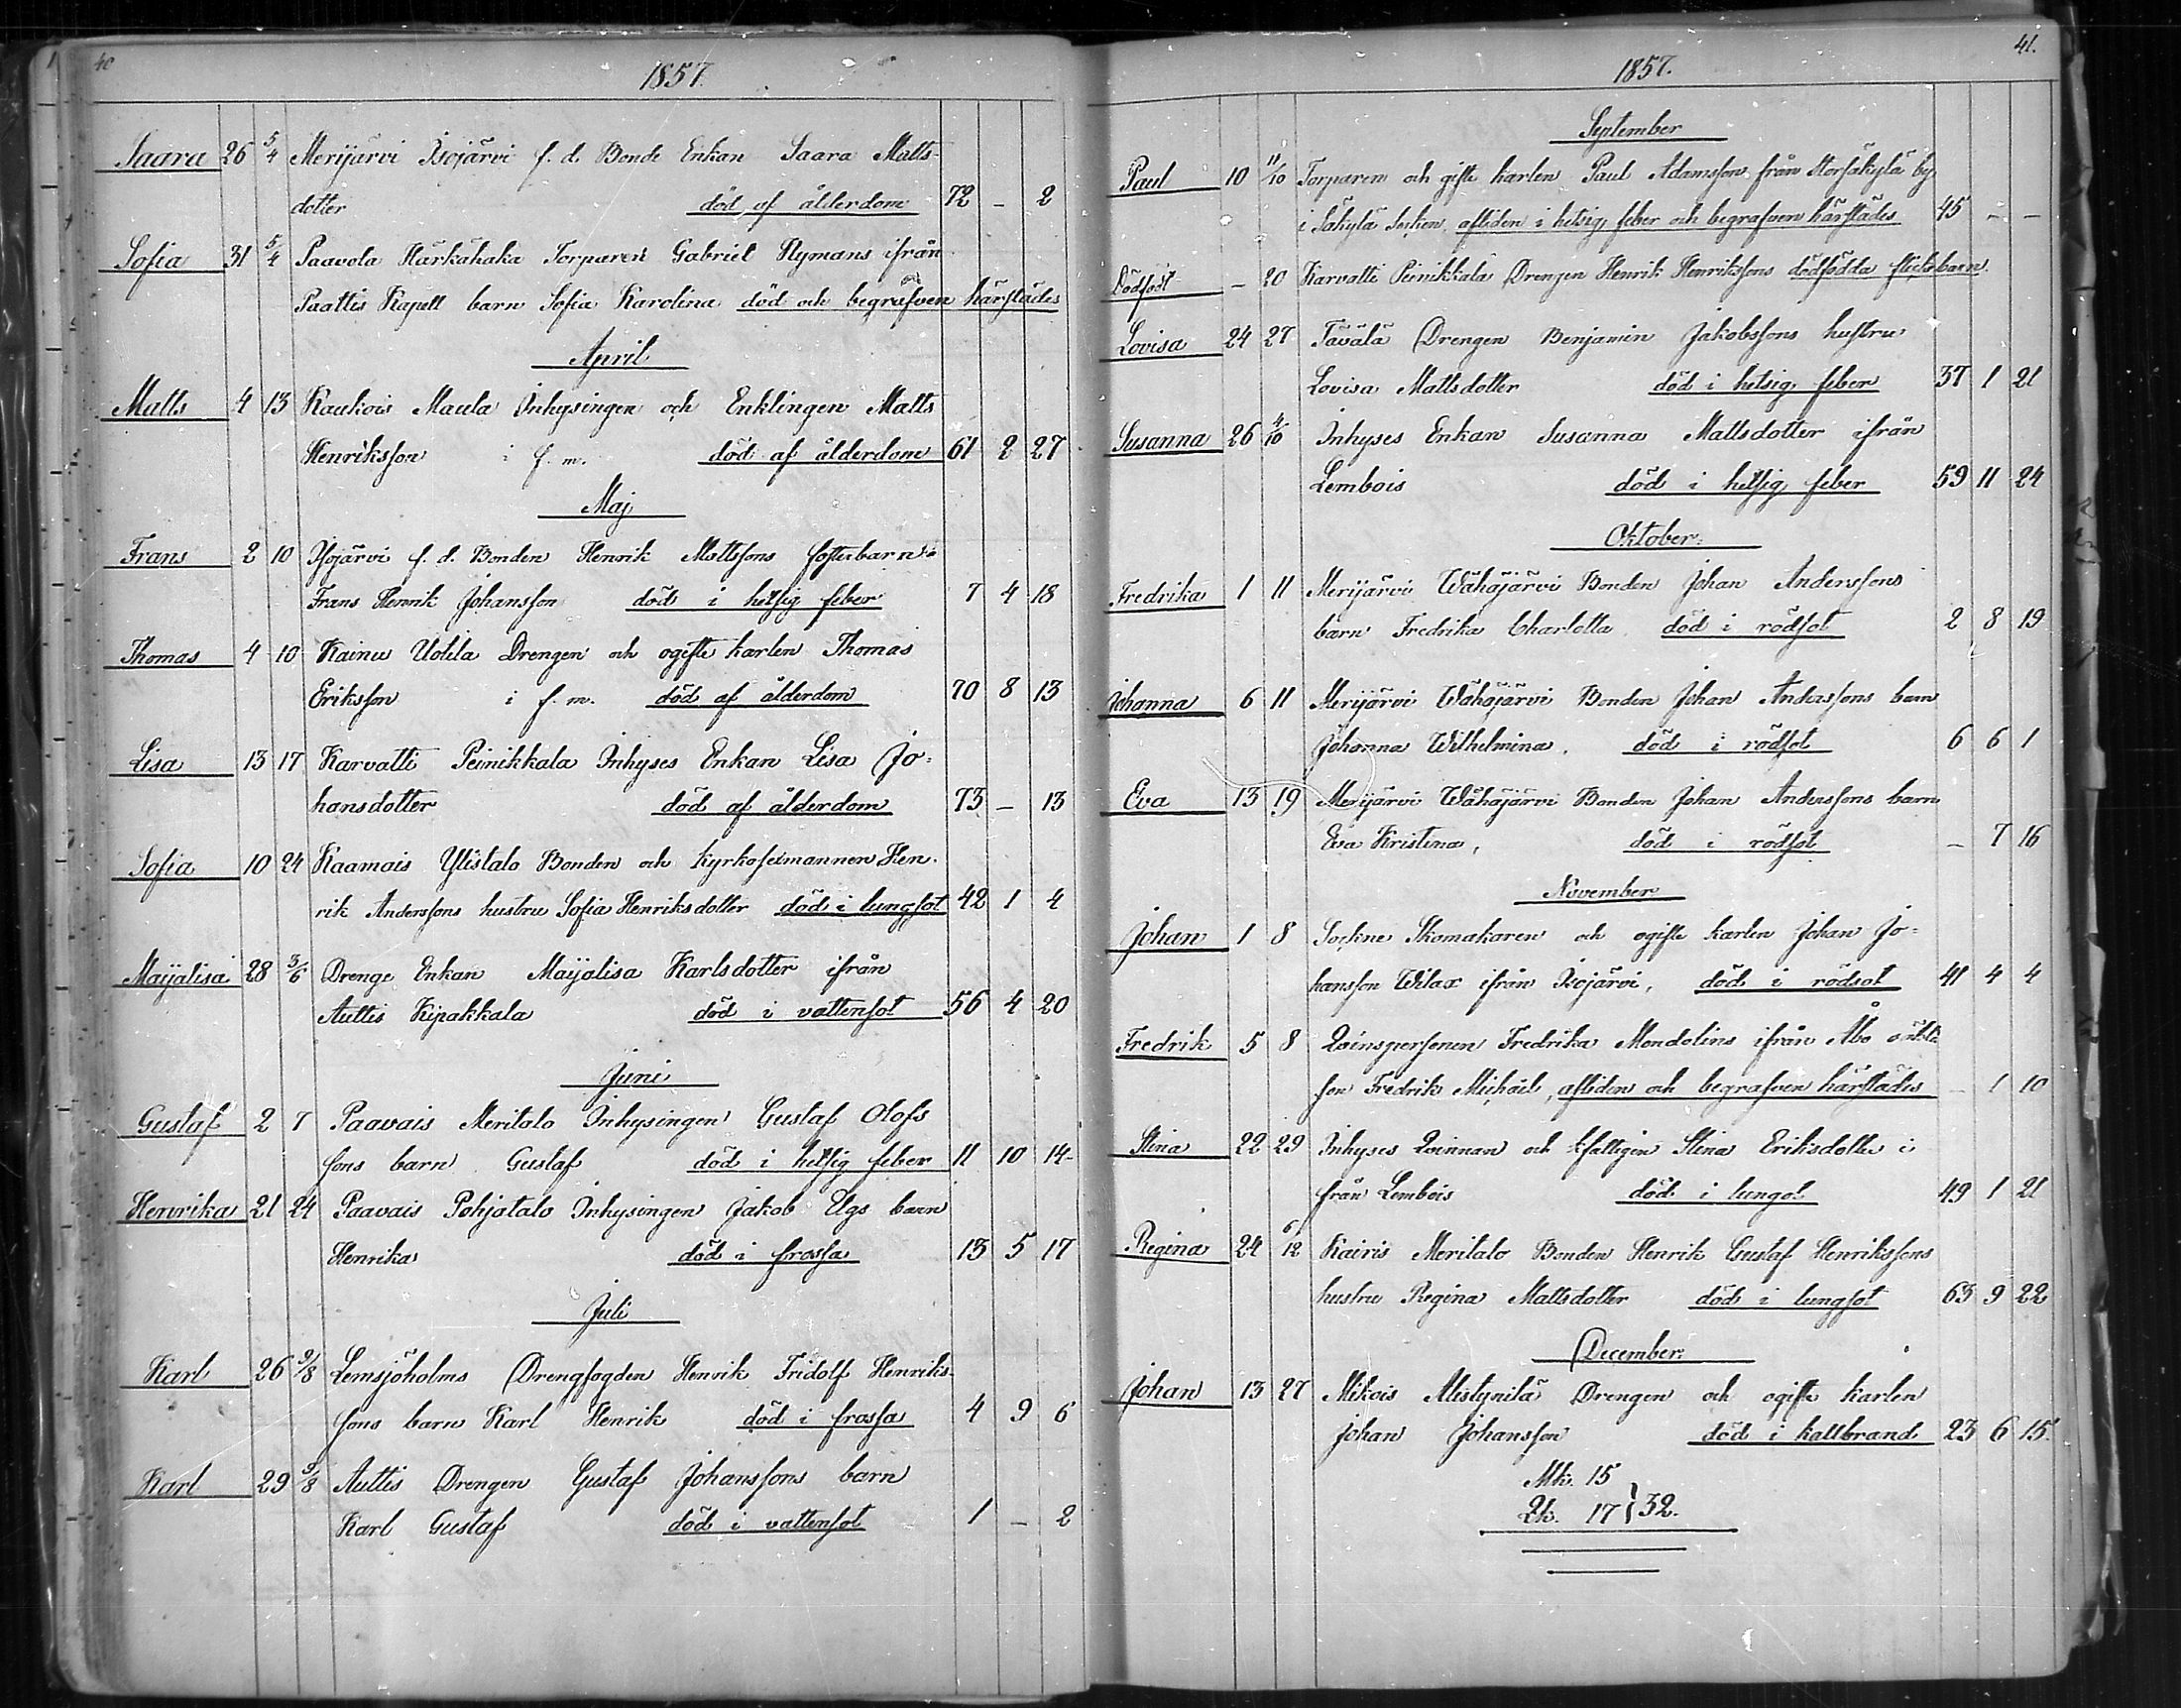 40
1857.
Saara 26 5/4 Merijärvi Isojärvi f. d. Bonde Enkan Saara Matts-
dotter död af ålderdom 72 - 2
Sofia 31 5/4 Paavola Härkähaka Torparen Gabriel Nymans ifrån
Paattis Kapell barn Sofia Karolina död och begrafven härstädes
April
Matts 4 13 Kaukois Maula Inhysingen och Enklingen Matts
Henriksson i f. m. död af ålderdom 61 2 27
Maj
Frans 2 10 Isojärvi f. d. Bonden Henrik Mattssons fosterbarn
Frans Henrik Johansson död i hetsig feber 7 4 18
Thomas 4 10 Kainu Uotila Drengen och ogifte karlen Thomas
Eriksson i f. m. död af ålderdom 70 8 13
Lisa 13 17 Karvatti Peinikkala Inhyses Enkan Lisa Jo=
hansdotter död af ålderdom 73 - 13
Sofia 10 24 Kaamois Ylistalo Bonden och kyrkosexmannen Hen-
rik Anderssons hustru Sofia Henriksdotter död i lungsot 42 1 4
Maijalisa 28 3/6 Drenge Enkan Maijalisa Karlsdotter ifrån
Auttis Kipakkala död i vattensot 56 4 20
Juni
Gustaf 2 7 Paavais Meritalo Inhysingen Gustaf Olofs
sons barn Gustaf död i hetsig feber 11 10 14
Henrika 21 24 Paavais Pohjatalo Inhysingen Jakob Elgs barn
Henrika död i frossa 13 5 17
Juli
Karl 26 9/8 Lemsjöholms Drengfogden Henrik Fridolf Henriks-
sons barn Karl Henrik död i frossa 4 9 6
Karl 29 9/8 Auttis Drengen Gustaf Johanssons barn
Karl Gustaf död i vattensot 1 - 2
41.
1857.
September
Paul 10 11/10 Torparen och gifte karlen Paul Adamsson från Storsäkylä by
i Säkylä Socken, afliden i hetsig feber och begrafven härstädes 45 - -
Dödfödt - 20 Karvatti Peinikkala Drengen Henrik Henrikssons dödfödda flickobarn.
Lovisa 24 27 Tavala Drengen Benjamin Jakobssons hustru
Lovisa Mattsdotter död i hetsig feber 37 1 21
Susanna 26 4/10 Inhyses Enkan Susanna Mattsdotter ifrån
Lembois död i hetsig feber 59 11 24
Oktober:
Fredrika 1 11 Merijärvi Wähäjärvi Bonden Johan Anderssons
barn Fredrika Charlotta död i rödsot 2 8 19
Johanna 6 11 Merijärvi Wähäjärvi Bonden Johan Anderssons barn
Johanna Wilhelmina, död i rödsot 6 6 1
Eva 13 19 Merijärvi Wähäjärvi Bonden Johan Anderssons barn
Eva Kristina, död i rödsot - 7 16
November
Johan 1 8 Sockne Skomakaren och ogifte karlen Johan Jo=
hansson Wilax ifrån Isojärvi, död i rödsot 41 4 4
Fredrik 5 8 Qvinspersonen Fredrika Mondelins ifrån Åbo oäkta
son Fredrik Michael, afliden och begrafven härstädes - 1 10
Stina 22 29 Inhyses Qvinnan och Stina Eriksdotter i
från Lembois död i lungot 49 1 21
Regina 24 6/12 Kairis Meritalo Bonden Henrik Gustaf Henrikssons
hustru Regina Mattsdotter död i lungsot 63 9 22
December:
Johan 13 27 Mikois Drengen och ogifte karlen
Johan Johansson död i kallbrand 23 6 15.
Mk. 15
Qk. 17 } 32.